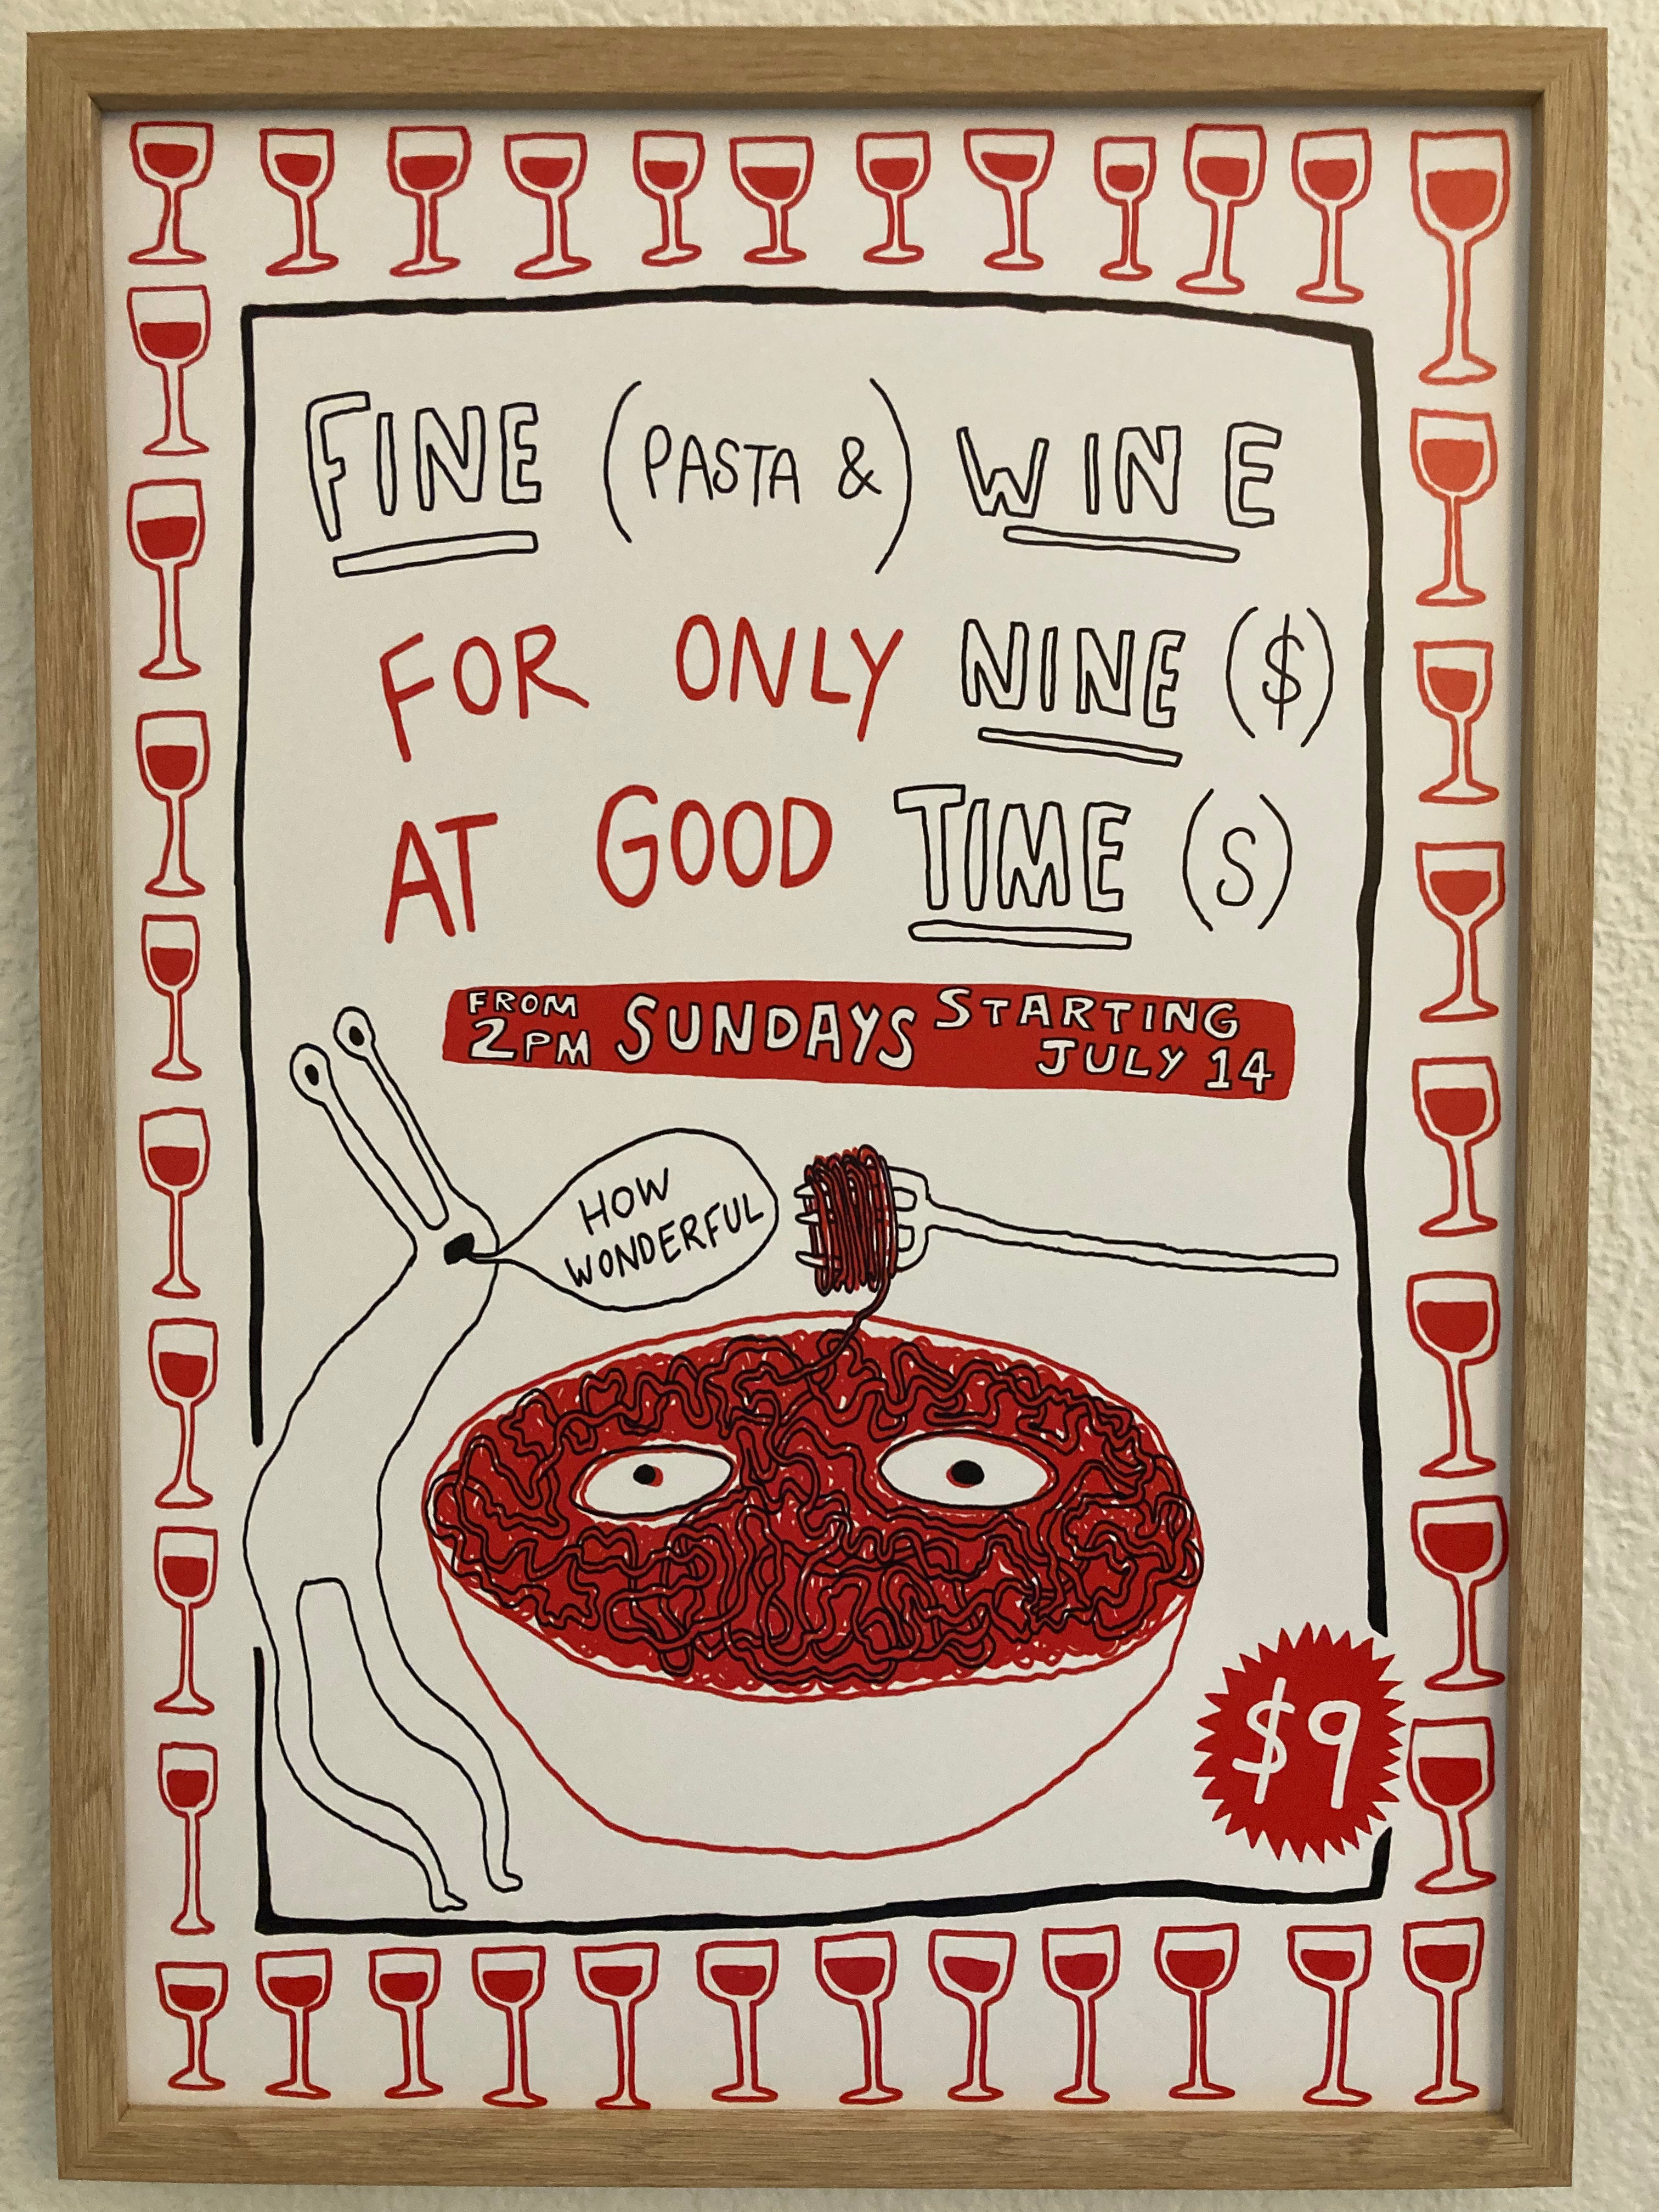 FINE (PASTA &) WINE
FOR ONLY NINE ($)
AT GOOD TIME (S)
FROM 2PM SUNDAYS STARTING JULY 14
HOW
WONDERFUL
$9